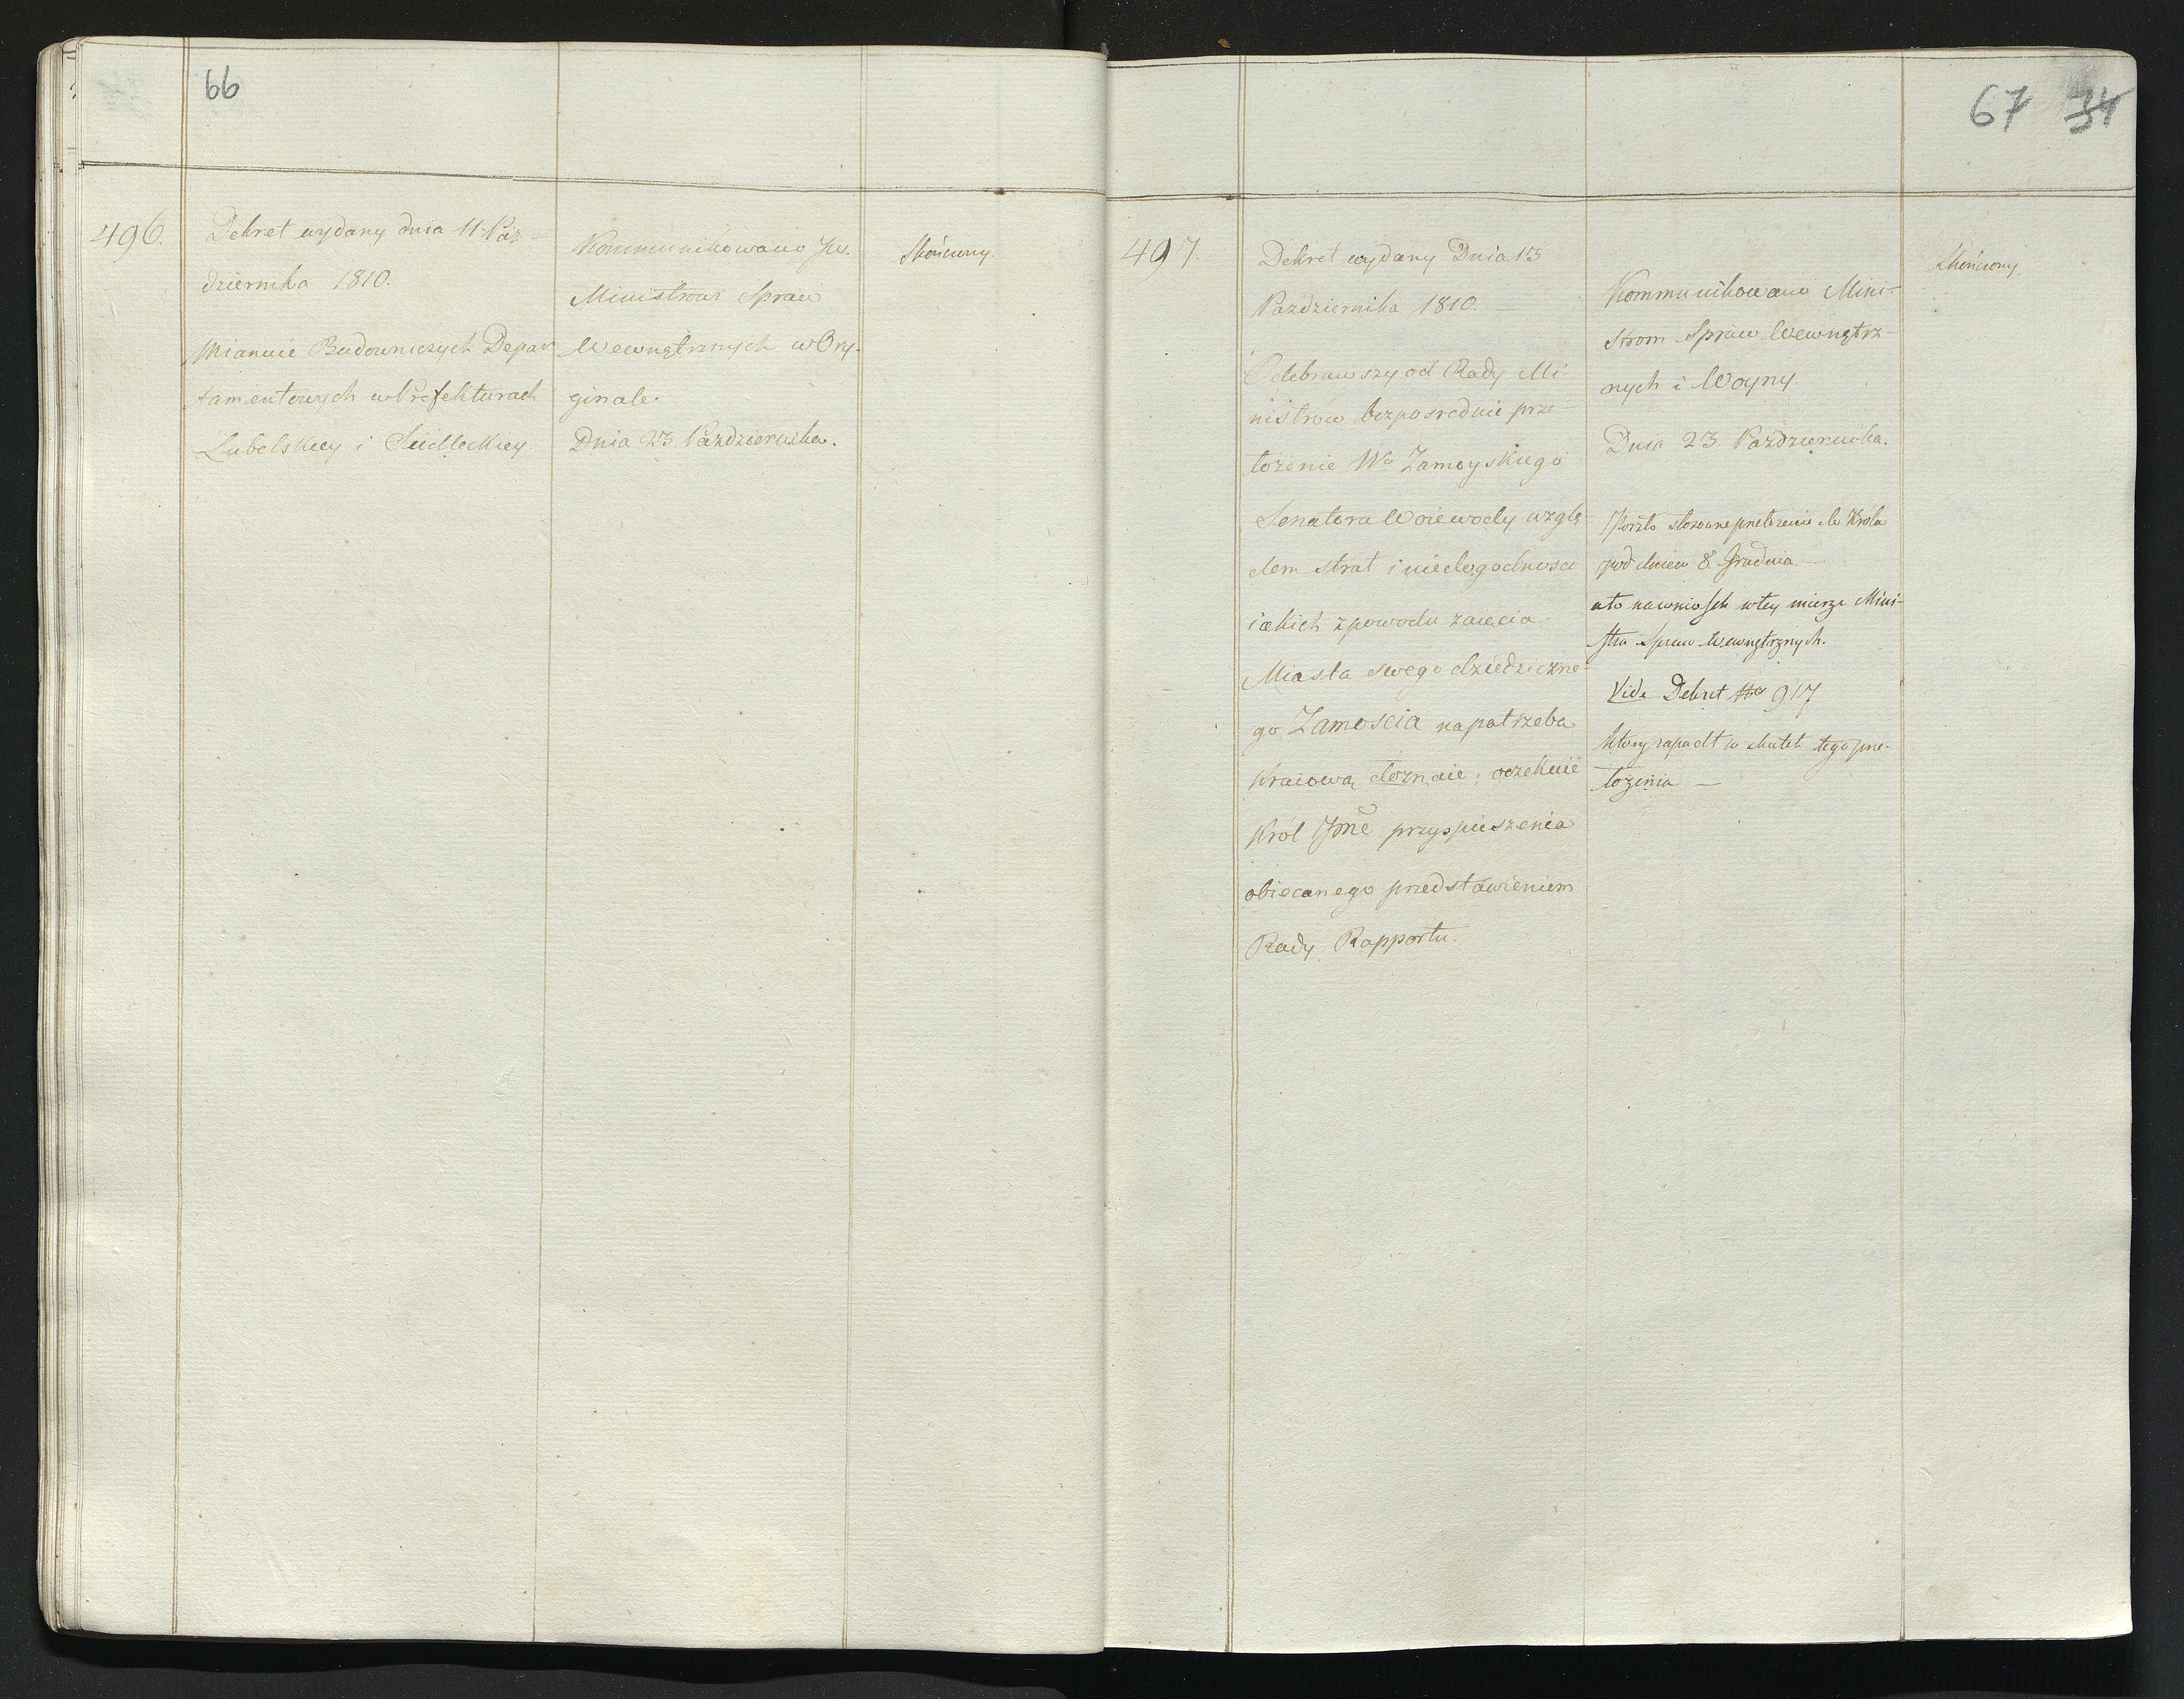 66
496.
Dekret wydany dnia 11 Paź-
dziernika 1810.
Mianuie Budowniczych Depar
tamentowych w Prefekturach
Lubelskiey i Siedleckiey
Kommunikowano JW.
Ministrowi Spraw
Wewnętrznych w Ory-
ginale.
Dnia 23. Października.
Skończony.
67 34
497.
Dekret wydany Dnia 13
Października 1810. —
Odebrawszy od Rady Mi-
nistrów bezposrednie prze-
łożenie Wo Zamoyskiego
Senatora Woiewody wzglę-
dem strat i niedogodnosci
iakich z powodu zaięcia
Miasta swego dziedziczne-
go Zamoscia na potrzeba
Kraiową doznaie; oczekuie
Król Jmć przyspieszenia
obiecanego przedstawieniem
Rady Rapportu.
Kommunikowano Mini-
strom Spraw Wewnętrz-
nych i Woyny.
Dnia 23. Października.
Poszło stosowne przełożenie do Krola
pod dniem 8. Grudnia —
a to na wniosek w tey mierze Mini-
stra Spraw Wewnętrznych.
Vide Dekret No 917
ktory zapadł w skutek tego prze-
łożenia —
Skończony.